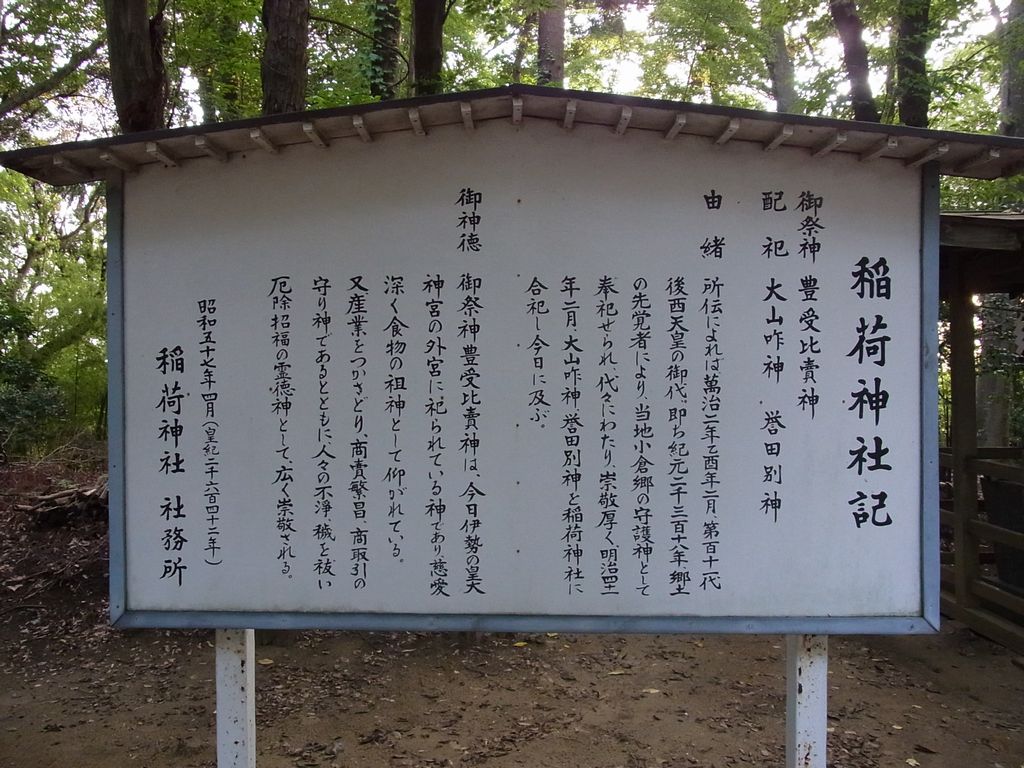 稲荷神社記
御祭神 豊受比賣神
配祀 大山咋神 誉田別神
由緒 所伝によれば萬治二年乙酉年二月、第百十一代
後西天皇の御代、即ち紀元二千三百十八年郷土
の先覚者により、当地小倉郷の守護神として
奉祀せられ、代々にわたり崇敬厚く明治四十一
年二月、大山咋神、誉田別神を稲荷神社に
合祀し今日に及ぶ。
御神徳 御祭神豊受比賣神は、今日伊勢の皇大
神宮の外宮に祀られている神であり慈愛
深く食物の祖神として仰がれている。
又産業をつかさどり、商賣繁昌、商取引の
守り神であるとともに人々の不浄、穢を祓い
厄除招福の霊徳神として、広く崇敬される。
昭和五十七年四月(皇紀二千六百四十二年)
稲荷神社 社務所